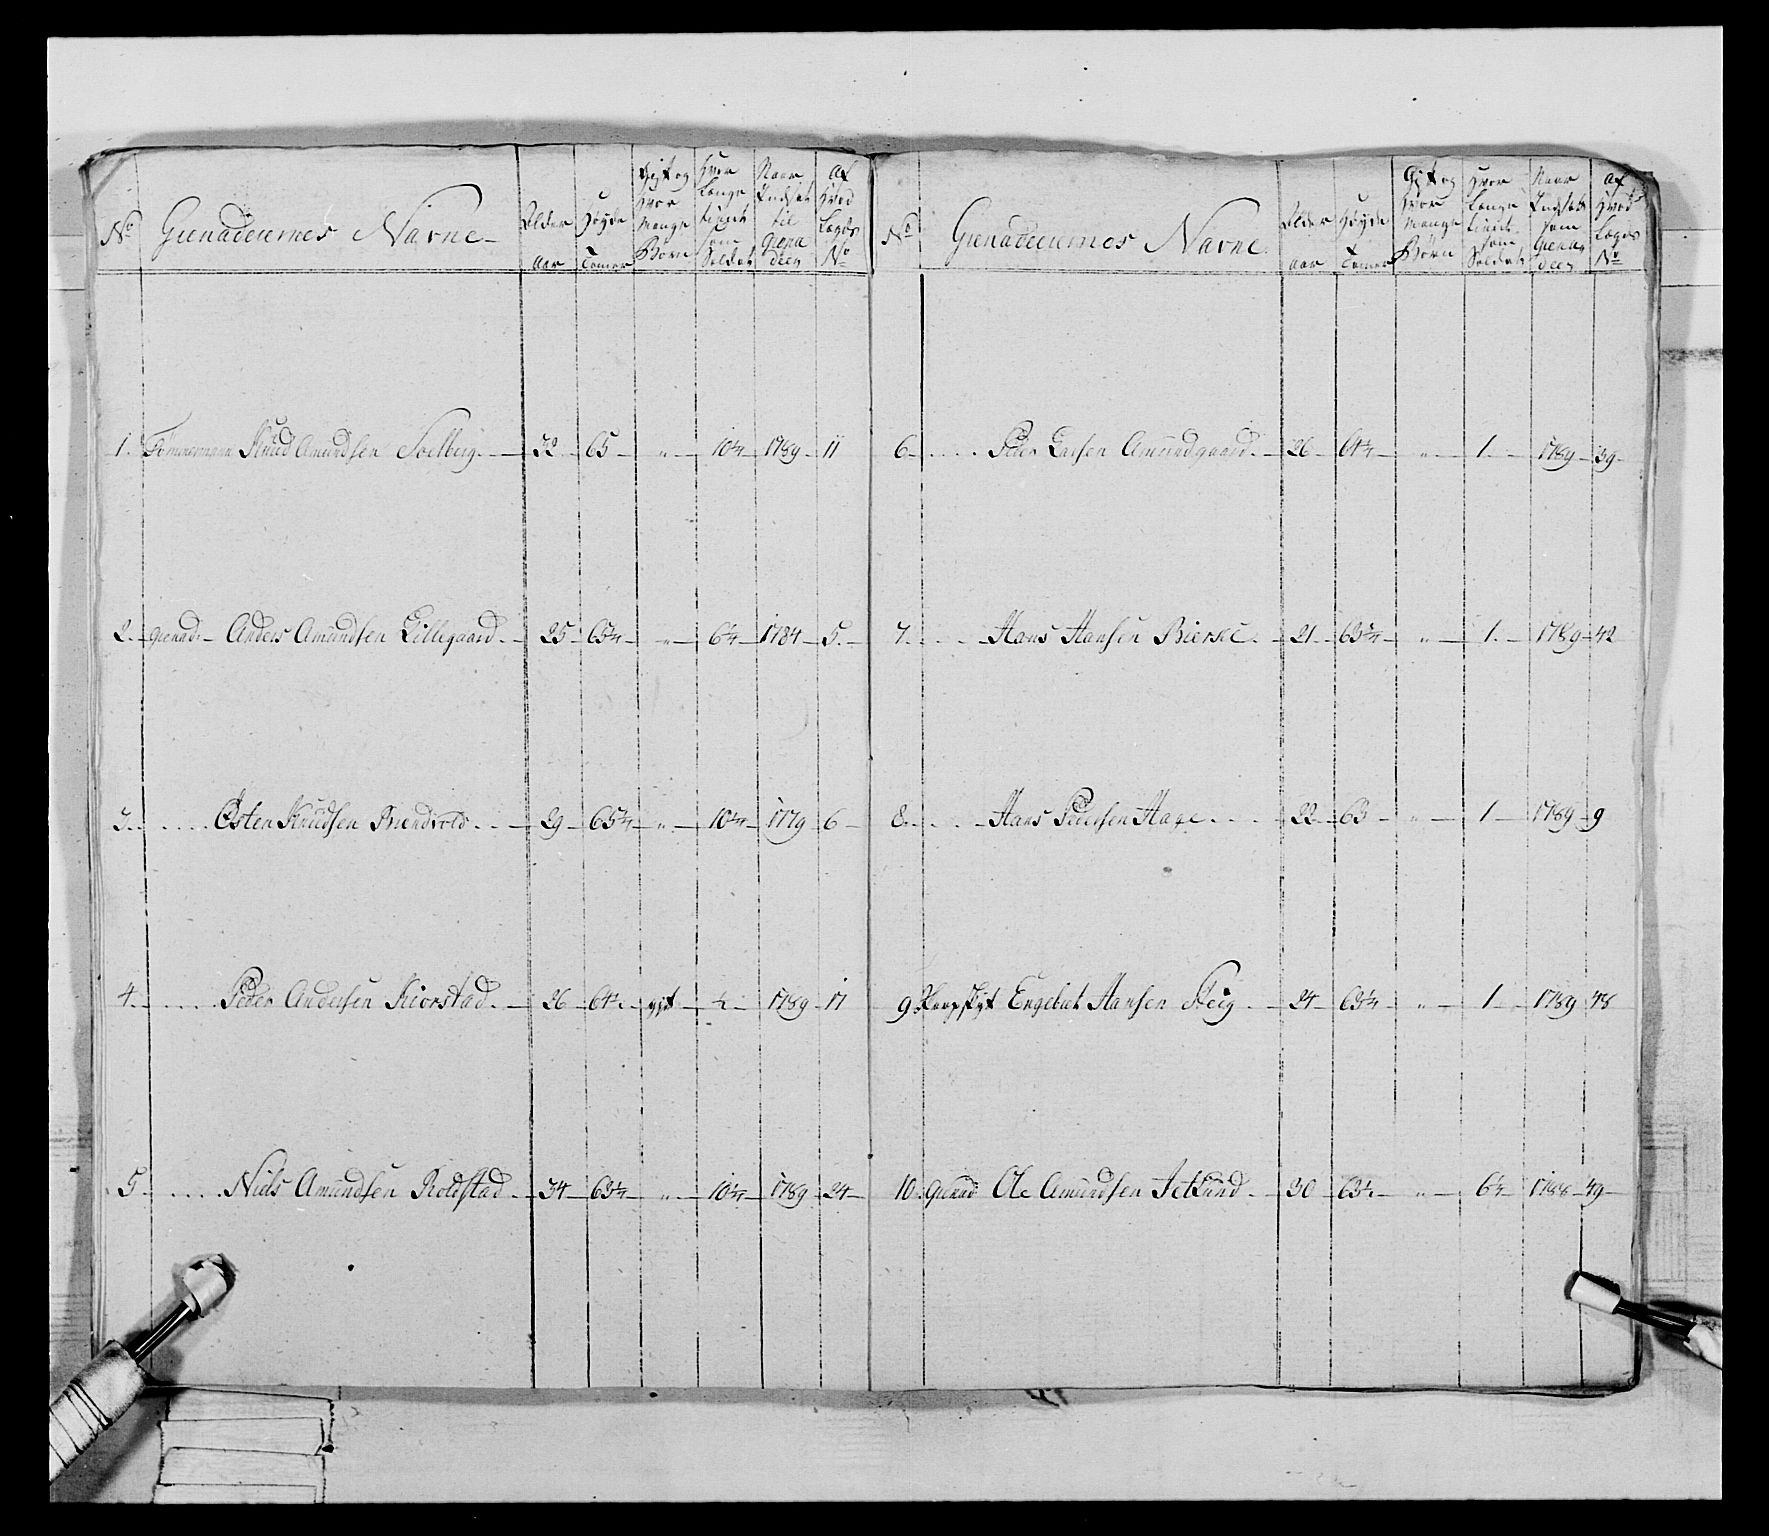 No
Grenadeernes Navne
Alder
Aar
Høyde
Tommer
Gift og
Hvor
Mange
Børn
Hvor
Længe
tient
som
Soldat
Naar
Indsat
til
Grena
deer
Af
Hvad
Lægds
No
1. Tømmermann Knud Amundsen Solberg 32 65 " 10¼ 1789 11
2. Grenad: Anders Amundsen Lillegaard 25 65¼ " 6¼ 1784 5.
3. Østen Knudsen 29 65¾ " 10¼ 1779 6
4. Peder Andersen Kiorstad 26 64½ gift ½ 1789 17
5 Niels Amundsen Roldstad 34 63¼ " 10¼ 1789 24
No
Grenadeernes Navne
Alder
Aar
Høyde
Tommer
Gift og
Hvor
Mange
Børn
Hvor
Længe
tient
som
Soldat
Naar
Indsat
som
Grena
deer
Af
Hvad
Lægds
No
6 Peder Larsen Amundgaard 26 64¼ " 1. 1789 39
7. Hans Hansen Bierke 21 63¾ " 1. 1789 42
8. Hans Pedersen Hage 22 63 " 1 1789 9
9 Skarpskyt Engebret Hansen Steig 24 63¼ " 1 1789 48
10 Grenad Ole Amundsen Jetlund 30 63½ " 6¼ 1788 49